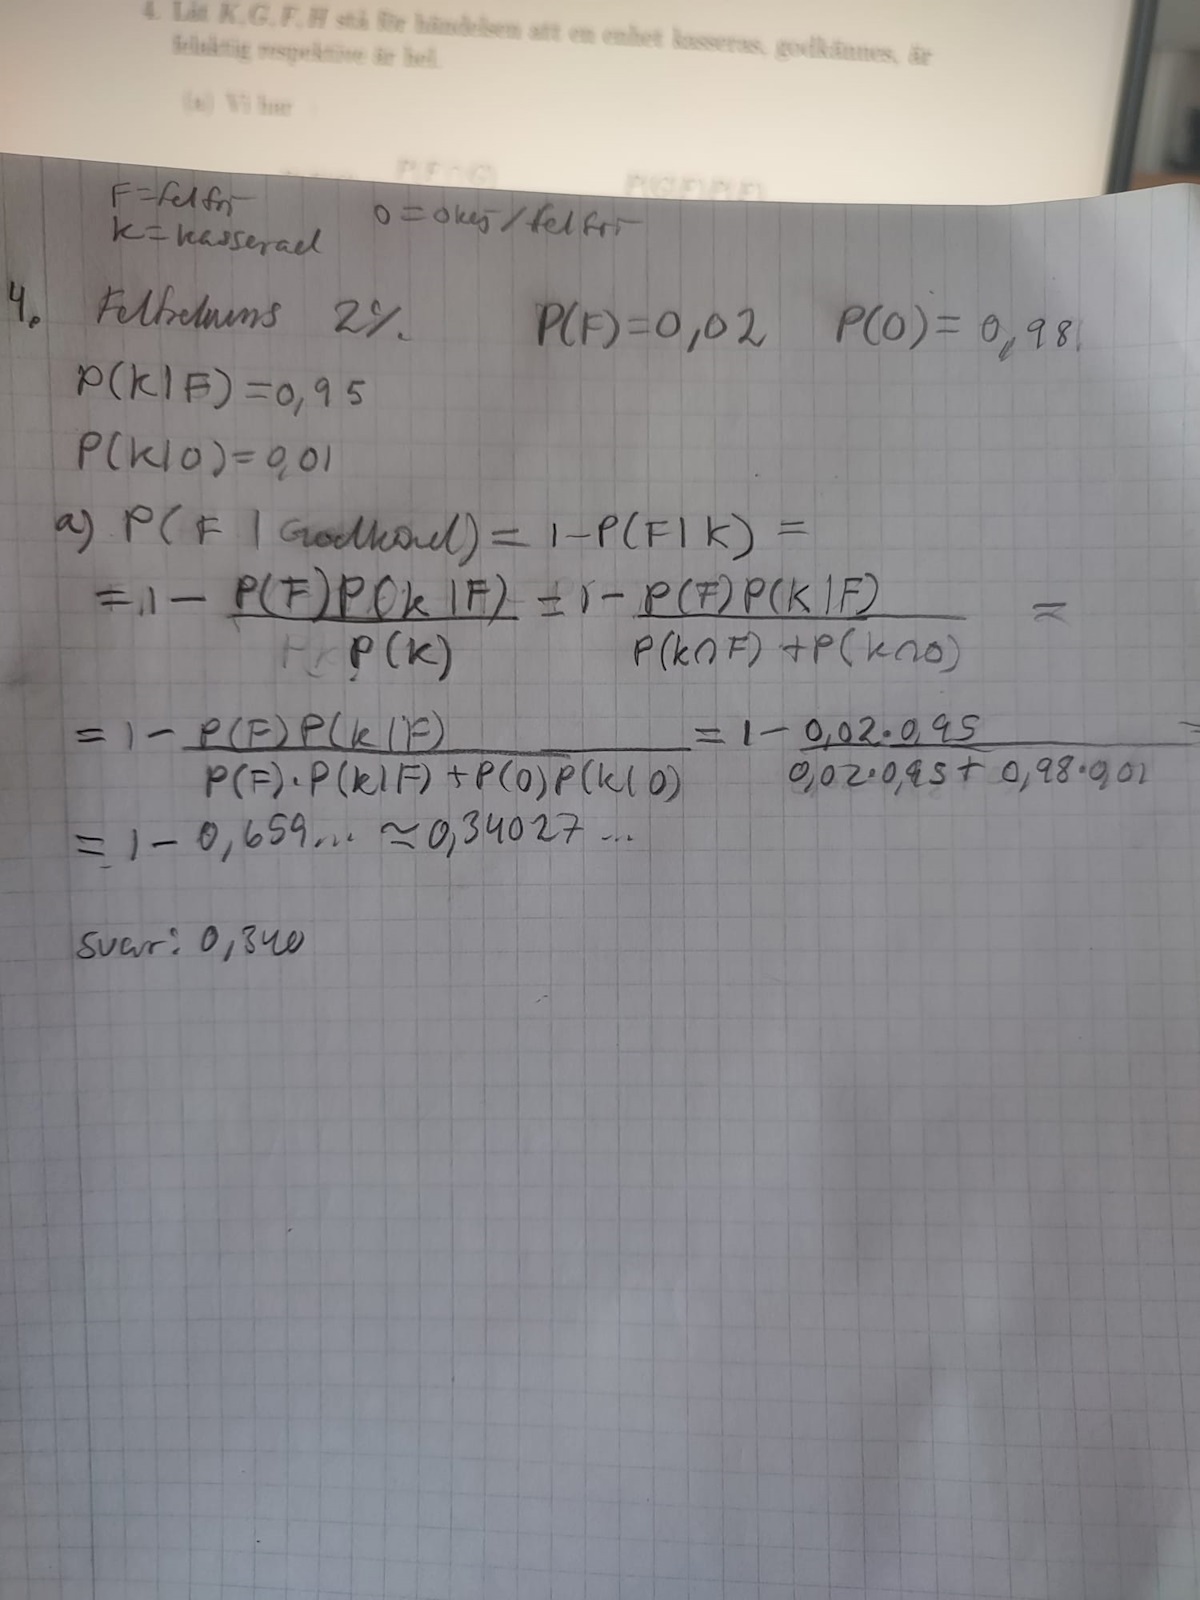 4. Låt K, G, F, H stå för händelsen att en enhet kasseras, godkännes, är
felaktig respektive är hel.
(a) Vi har
P(F∩G) P(G|F)P(F)
F=felfri
K=kasserad
O=okej/felfri
4. 2%. P(F)=0,02 P(O)=0,98
P(K|F)=0,95
P(K|O)=0,01
a) P(F|Godkänd)=1-P(F|K)=
=1-P(F)P(K|F)/P(K) = 1-P(F)P(K|F)/P(K∩F)+P(K∩O) =
=1-P(F)P(K|F)/P(F)·P(K|F)+P(O)P(K|O) =1-0,02·0,95/0,02·0,95+0,98·0,01 =
=1-0,659... ≃0,34027...
svar: 0,340